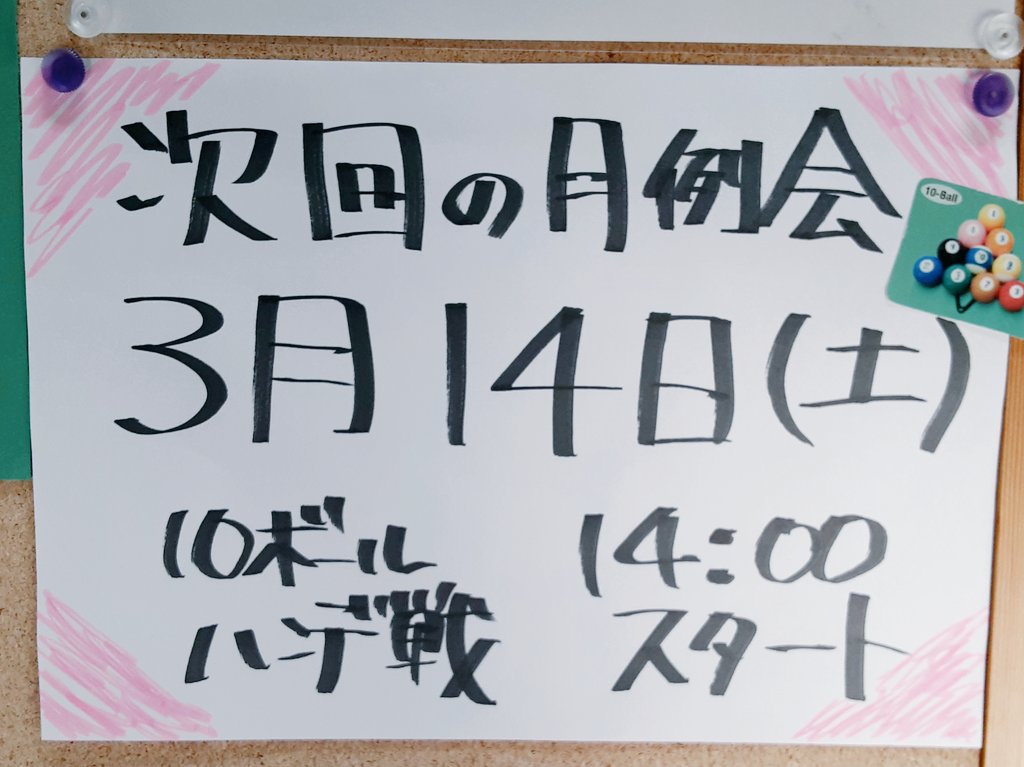 次回の月例会
10-Ball
3月14日(土)
10ボール
ハンデ戦
14:00
スタート